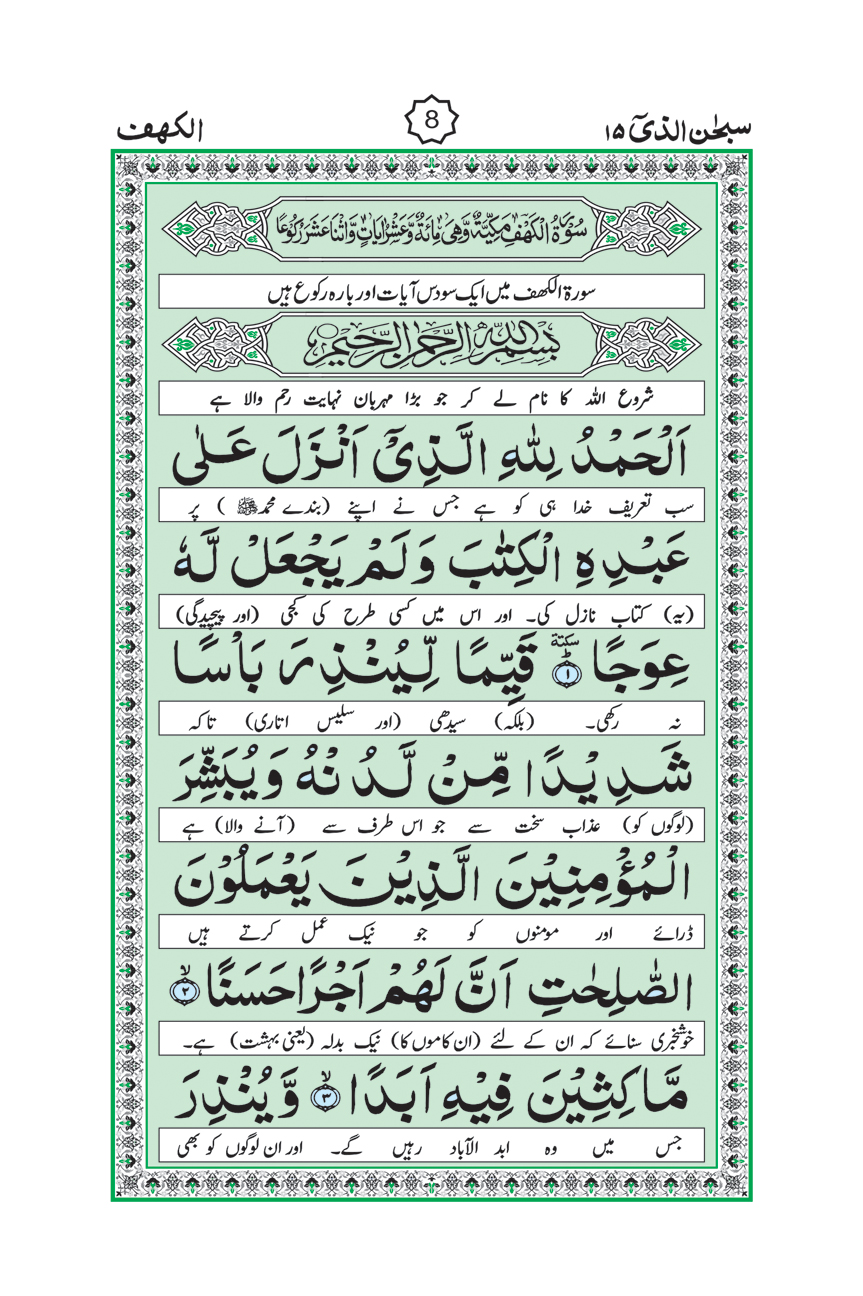 سبحٰن الذیٓ ۱۵
8
الکھف
سُوْرَةُ الْكَهْفِ مَكِّيَّةٌ وَّهِیَ مِائَةٌ وَّعَشْرُ اٰيَاتٍ وَّاثْنَا عَشَرَ رُكُوْعًا
سورة الکھف میں ایک سو دس آیات اور بارہ رکوع ہیں
بِسْمِ اللّٰهِ الرَّحْمٰنِ الرَّحِيْمِ
شروع اللہ کا نام لے کر جو بڑا مہربان نہایت رحم والا ہے
اَلْحَمْدُ لِلّٰهِ الَّذِیْۤ اَنْزَلَ عَلٰی
سب تعریف خدا ہی کو ہے جس نے اپنے (بندے محمدﷺ) پر
عَبْدِهِ الْكِتٰبَ وَلَمْ يَجْعَلْ لَّهٗ
(یہ) کتاب نازل کی۔ اور اس میں کسی طرح کی کجی (اور پیچیدگی)
عِوَجًا ؕ سكتة ۱ قَيِّمًا لِّيُنْذِرَ بَاْسًا
نہ رکھی۔ (بلکہ) سیدھی (اور سلیس اتاری) تاکہ
شَدِيْدًا مِّنْ لَّدُنْهُ وَيُبَشِّرَ
(لوگوں کو) عذاب سخت سے جو اس طرف سے (آنے والا) ہے
الْمُؤْمِنِيْنَ الَّذِيْنَ يَعْمَلُوْنَ
ڈرائے اور مومنوں کو جو نیک عمل کرتے ہیں
الصّٰلِحٰتِ اَنَّ لَهُمْ اَجْرًا حَسَنًا ۙ ۲
خوشخبری سنائے کہ ان کے لئے (ان کاموں کا) نیک بدلہ (یعنی بہشت) ہے۔
مَّاكِثِيْنَ فِيْهِ اَبَدًا ۙ ۳ وَّيُنْذِرَ
جس میں وہ ابد الآباد رہیں گے۔ اور ان لوگوں کو بھی